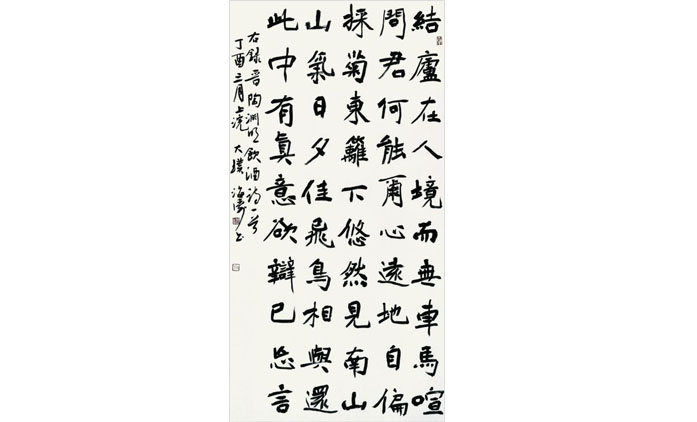 結廬在人境而無車馬喧
問君何能爾心遠地自偏
採菊東籬下悠然見南山
山氣日夕佳飛鳥相與還
此中有真意欲辯已忘言
右錄晋陶淵明飲酒詩一首
丁酉三月上浣大樸海濤書